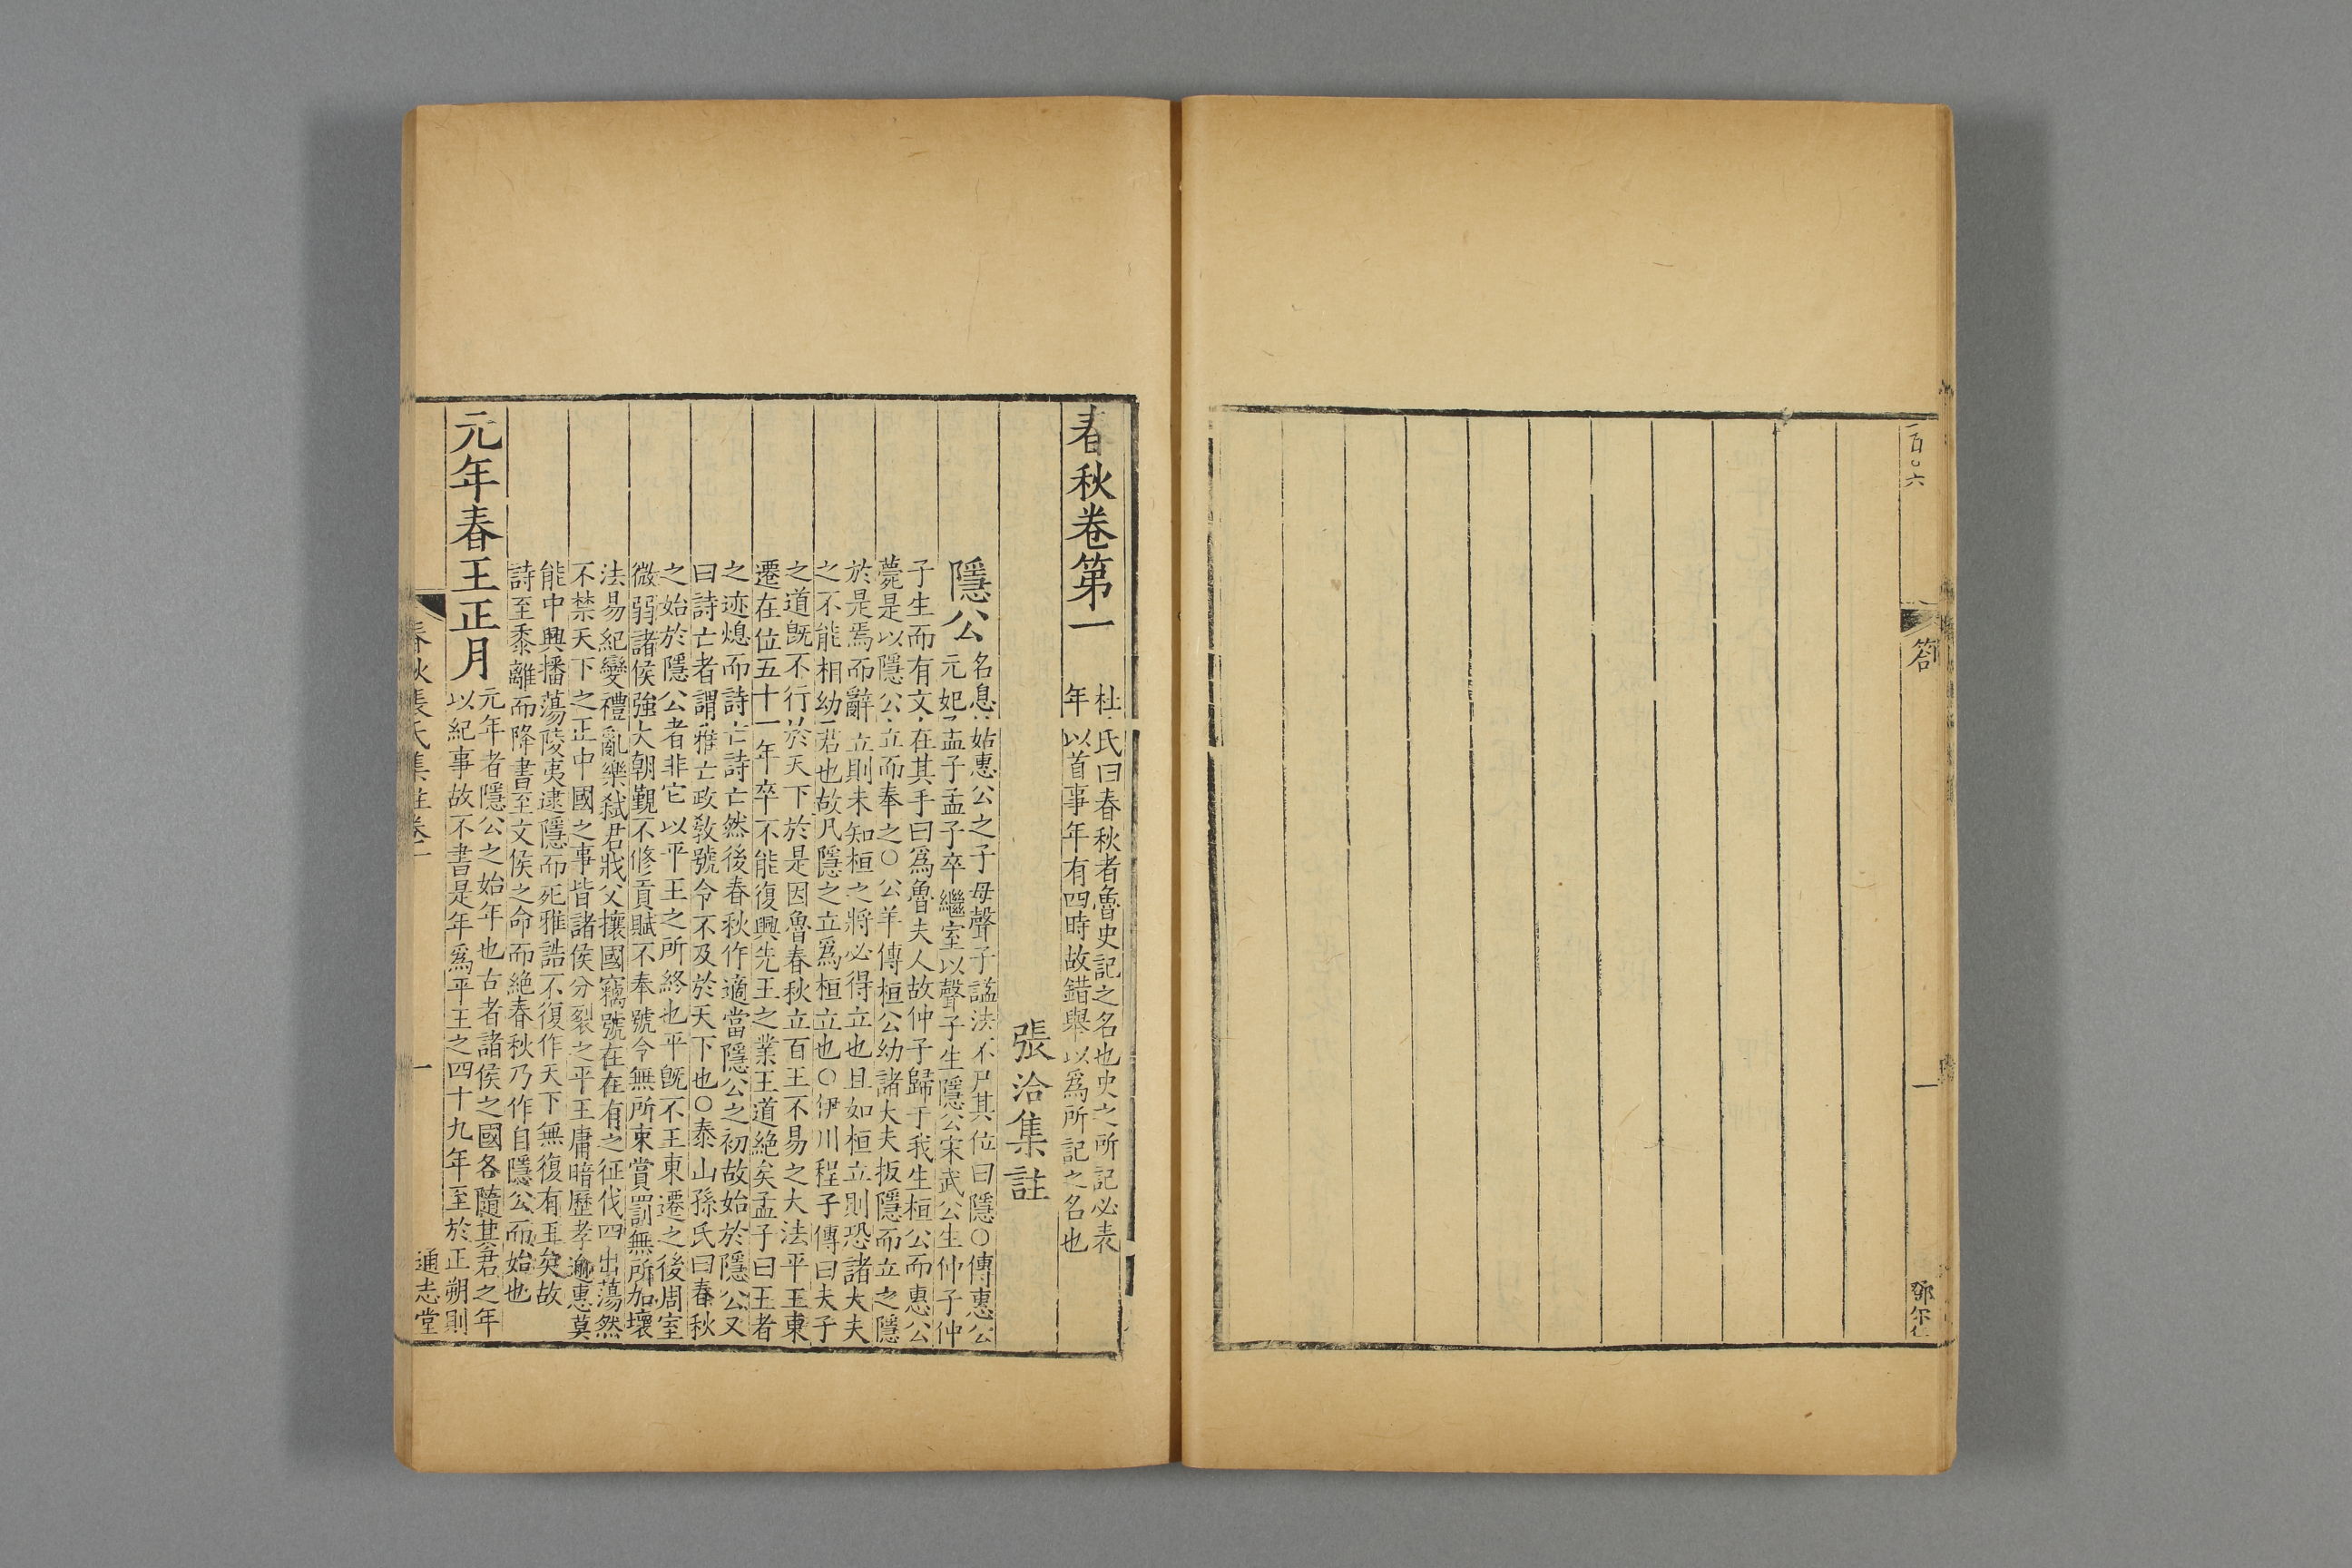 一百〇六
劄
一
鄧尔仁
春秋卷第一
杜氏曰春秋者魯史記之名也史之所記必表
年以首事年有四時故錯舉以爲所記之名也
張洽集註
隱公
名息姑惠公之子母聲子諡法不尸其位曰隱○傳惠公
元妃孟子孟子卒繼室以聲子生隱公宋武公生仲子仲
子生而有文在其手曰爲魯夫人故仲子歸于我生桓公而惠公
薨是以隱公立而奉之○公羊傳桓公幼諸大夫扳隱而立之隱
於是焉而辭立則未知桓之將必得立也且如桓立則恐諸大夫
之不能相幼君也故凡隱之立爲桓立也○伊川程子傳曰夫子
之道旣不行於天下於是因魯春秋立百王不易之大法平王東
遷在位五十一年卒不能復興先王之業王道絶矣孟子曰王者
之迹熄而詩亡詩亡然後春秋作適當隱公之初故始於隱公又
曰詩亡者謂雅亡政教號令不及於天下也○泰山孫氏曰春秋
之始於隱公者非它以平王之所終也平旣不王東遷之後周室
微弱諸侯強大朝覲不修貢賦不奉號令無所束賞罰無所加壞
法易紀變禮亂樂弑君戕父攘國竊號在在有之征伐四出蕩然
不禁天下之正中國之事皆諸侯分裂之平王庸暗歷孝逾惠莫
能中興播蕩陵夷逮隱而死雅誥不復作天下無復有王矣故
詩至黍離而降書至文侯之命而絶春秋乃作自隱公而始也
元年春王正月
元年者隱公之始年也古者諸侯之國各隨其君之年
以紀事故不書是年爲平王之四十九年至於正朔則
春秋張氏集註卷一
一
通志堂